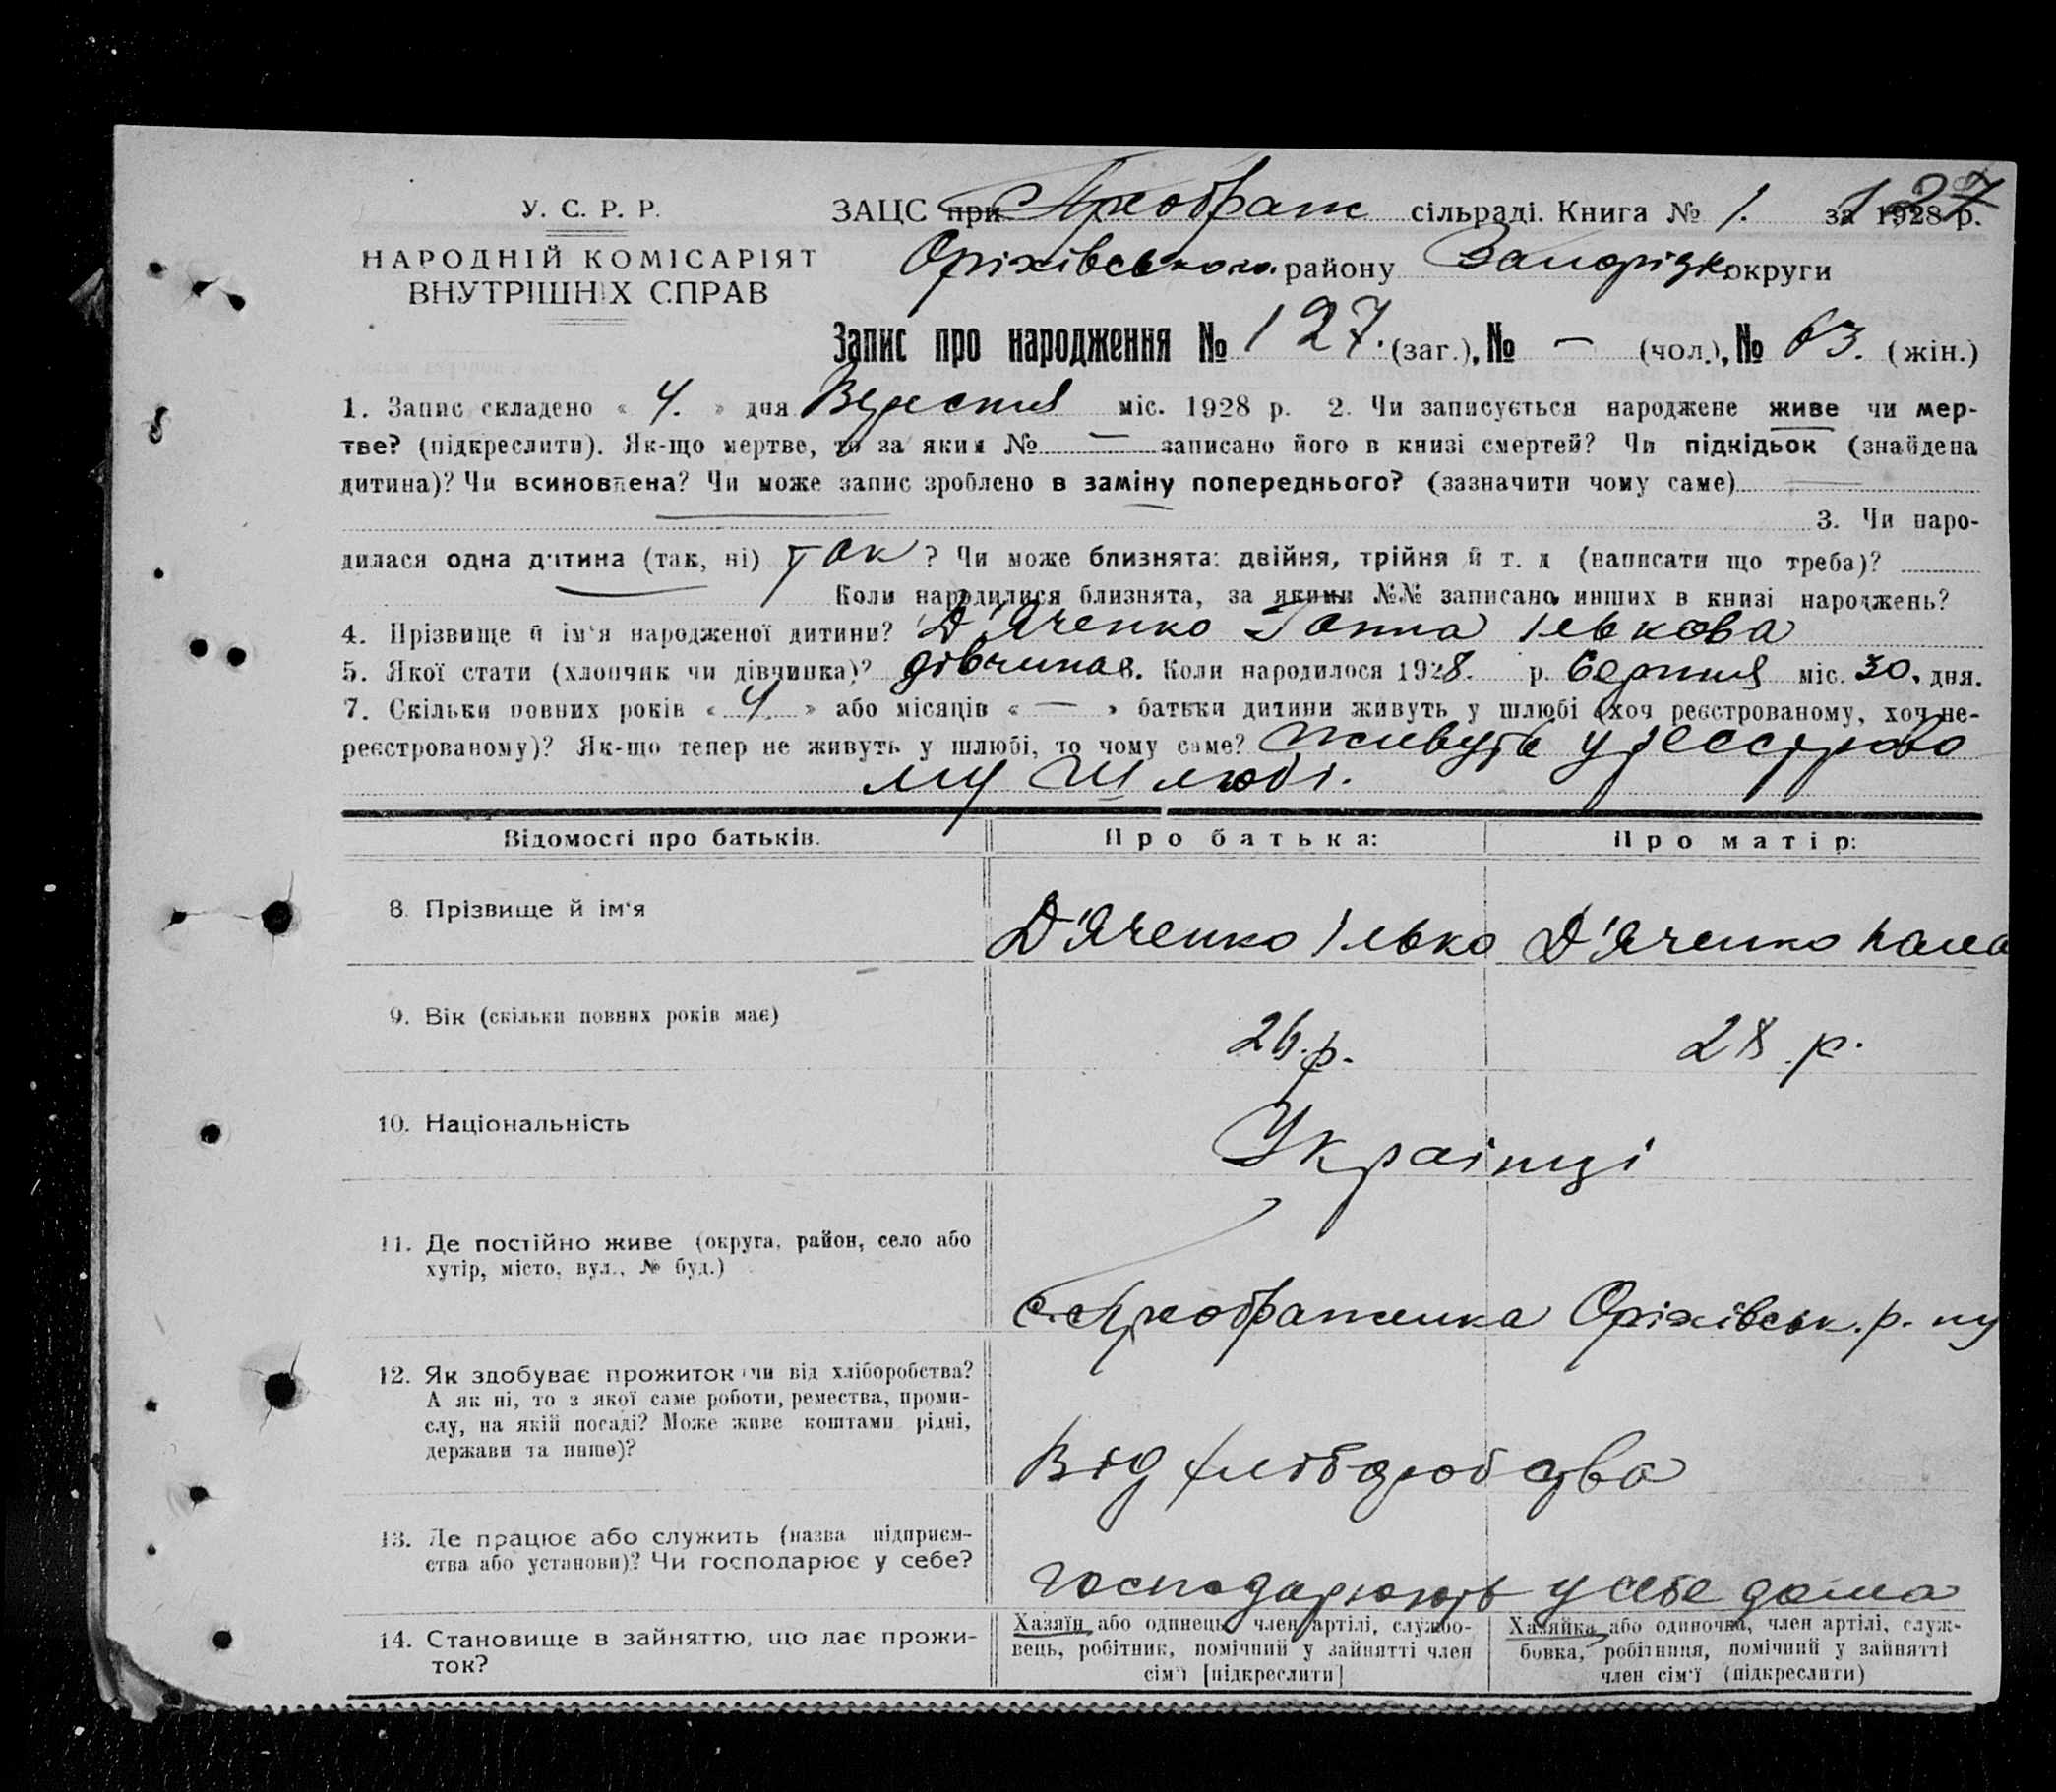 127
У. С. Р. Р.
ЗАЦС при Преображ сільраді. Книга № 1. за 1928 р.
НАРОДНІЙ КОМІСАРІЯТ
ВНУТРІШНІХ СПРАВ
Оріхівського району Запорізк округи
Запис про народження № 127. (заг.), № — (чол.), № 63. (жін.)
1. Запис складено « 4. » дня Вересня міс. 1928 р. 2. Чи записується народжене живе чи мер-
тве? (підкреслити). Як-що мертве, то за яким № — записано його в книзі смертей? Чи підкідьок (знайдена
дитина)? Чи всиновлена? Чи може запис зроблено в заміну попереднього? (зазначити чому саме) —
3. Чи наро-
дилася одна дитина (так, ні) так ? Чи може близнята: двійня, трійня й т. д (написати що треба)?
Коли народилися близнята, за якими №№ записано инших в книзі народжень?
4. Прізвище й ім'я народженої дитини? Д'Яченко Ганна Ількова
5. Якої стати (хлопчик чи дівчинка)? дівчина 6. Коли народилося 1928. р. Серпня міс. 30. дня.
7. Скільки повних років « 4. » або місяців « — » батьки дитини живуть у шлюбі (хоч реєстрованому, хоч не-
реєстрованому)? Як-що тепер не живуть у шлюбі, то чому саме? живуть у реєстрово
му шлюбі.
Відомості про батьків. Про батька: Про матір:
8. Прізвище й ім'я Д'Яченко Ілько Д'Яченко
9. Вік (скільки повних років має) 26.р. 28.р.
10. Національність Українці
11. Де постійно живе (округа, район, село або
хутір, місто, вул., № буд.)
с. Преображенка Оріхівськ. р-ну
12. Як здобуває прожиток чи від хліборобства?
А як ні, то з якої саме роботи, ремества, проми-
слу, на якій посаді? Може живе коштами рідні,
держави та инше)?
Від хліборобства
13. Де працює або служить (назва підприєм-
ства або установи)? Чи господарює у себе?
господарюють у себе дома
14. Становище в зайняттю, що дає прожи-
ток?
Хазяїн або одинець, член артілі, службо-
вець, робітник, помічний у зайнятті член
сім'ї [підкреслити]
Хазяйка або одиночка, член артілі, служ-
бовка, робітниця, помічний у зайнятті
член сім'ї (підкреслити)